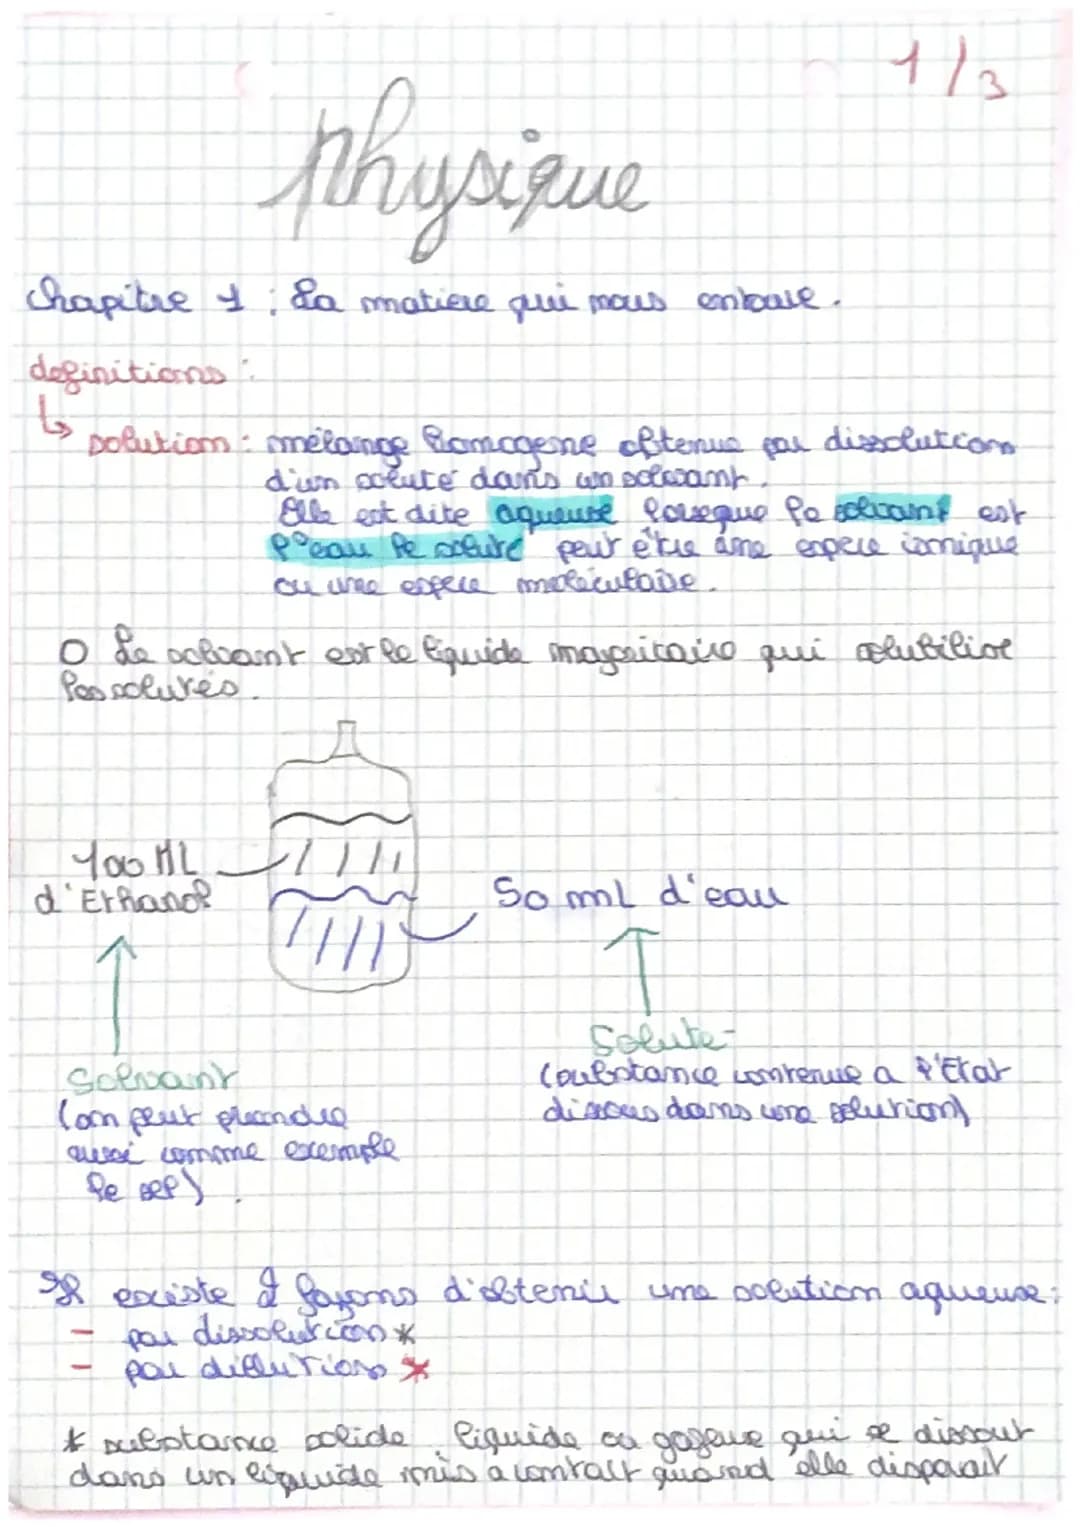 1/3
Physique
Chapitre 1 : La matiere qui nous entoure.
definitions :
↳ solution : mélange homogene obtenue par dissolution
d'un soluté dans un solvant.
Elle est dite aqueuse lorsque le solvant est
l'eau le soluté peut être une espece ionique
ou une espece moleculaire.
O Le solvant est le liquide majoritaire qui solubilise
les solutés.
100 ML
d'Ethanol
50 mL d'eau
Solvant
(on peut prendre
aussi comme exemple
le sel).
Soluté
(substance contenue a l'Etat
dissous dans une solution)
Il existe 2 façons d'obtenir une solution aqueuse :
- par dissolution *
- par dillution *
* substance solide, liquide ou gazeuse qui se dissout
dans un liquide mis a contact quand elle disparait